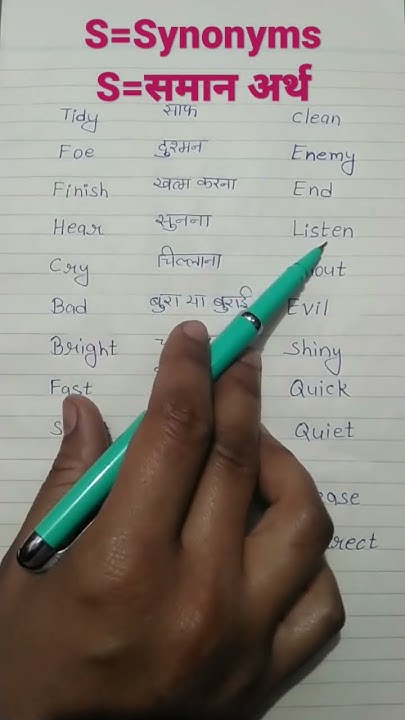 S=Synonyms
S=समान अर्थ
Tidy साफ clean
Foe दुश्मन Enemy
Finish खत्म करना End
Hear सुनना Listen
Cry चिल्लाना
Bad बुरा या बुराई Evil
Bright shiny
Fast Quick
Quiet